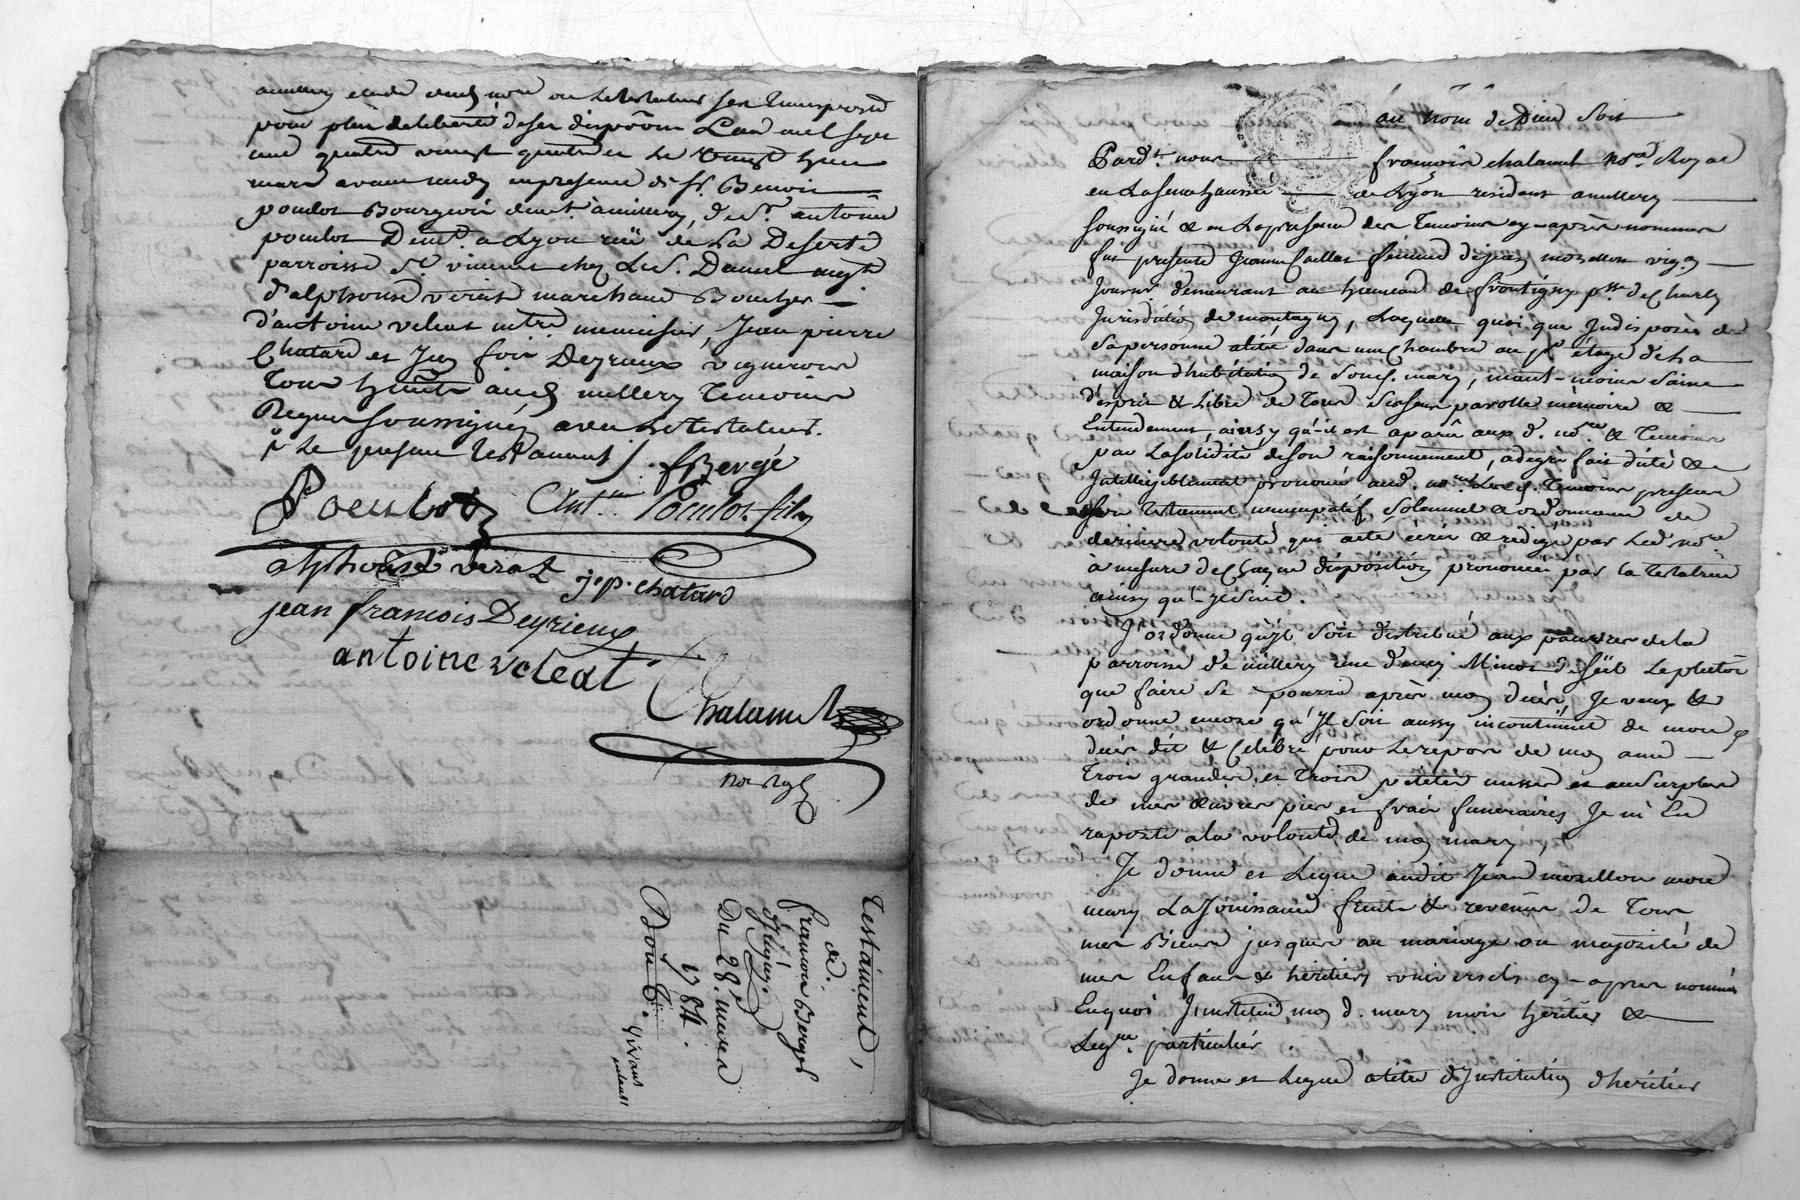 pour plein delibéré de ses dispõõns L'an mil sept
cens quatre vingt quatre et le vingt huit
mars avant midy en presence de Sr. Benoit
poculot Bourgeois demt. a millery, de sr. antoine
poculot Demt. a Lyon rüe de La Deserte
parroisse St. vincent chez Le S. Daniel
d'alphonse verat marchand Boucher
d'antoine veleat mtre menuisier, Jean pierre
Chatard et Jean fois Deyrieux vignerons
Tous Hants aud. millery Temoins
Requis soussignés avec Le testateur.
Le presant testament /. f Bergé
Poculot Ant.ne Poculot fils
alphonse verat j. p. chatard
jean francois Deyrieux
antoine veleat
Chalamel
not Ryl
Testament,
de
francois Berger
Du 28e. mars
1784.
Bon
vivans
au nom de Dieu soit
Pardt. nous francois chalamel nore. Royal
en La senechaussée de Lyon residant a millery
soussigné & en La presence des Temoins cy-après nommés
fut presente Jeanne Caillat femme de jean mozellon vig.on
Journr. demeurant au hameau de frontigny psse. de Charly
Jurisdiction de montagny, Laquelle quoi que Indisposée de
sa personne alitée dans une chambre au pr. étage de La
maison d'habitation de son d. mary, néant-moins saine
d'esprit & Libre de Tous ses sens parolle mémoire &
Entendement, ainsy qu'il est aparû aux d. nore. & Temoins
par La solidité de son raisonnement, a de gré fait dicté &
Intelligiblement prononcé aud. nore. & Temoins presens
son Testament nuncupatif, solemnel & ordonnance de
derniere volonté qui a été écrit & redigé par Led. nore.
à mesure de chaque disposition prononcée par la Testatrice
ainsy qu'il s'ensuit.
J'ordonne qu'il soit distribué aux pauvres de la
parroisse de millery une demy Minot de sel Le plutôt
que faire se pourra après mon decès, Je veux &
ordonne encore qu'Il soit aussy incontinent de mon
decès dit & Celebré pour Le repos de mon ame
Trois grandes et Trois petites messes et au surplus
de mes œuvres pies et frais funeraires, Je m'En
raporte a la volonté de mon mary,
Je donne et Legue audit Jean mozellon mon
mary La Jouissance fruits & revenus de Tous
mes Biens jusques au mariage ou majorité de
mes Enfans & héritiers universels cy-apres nommés
En quoi J'institue mon d. mary mon héritier &
Legre. particulier.
Je donne et Legue a titre d'Institution d'héritier